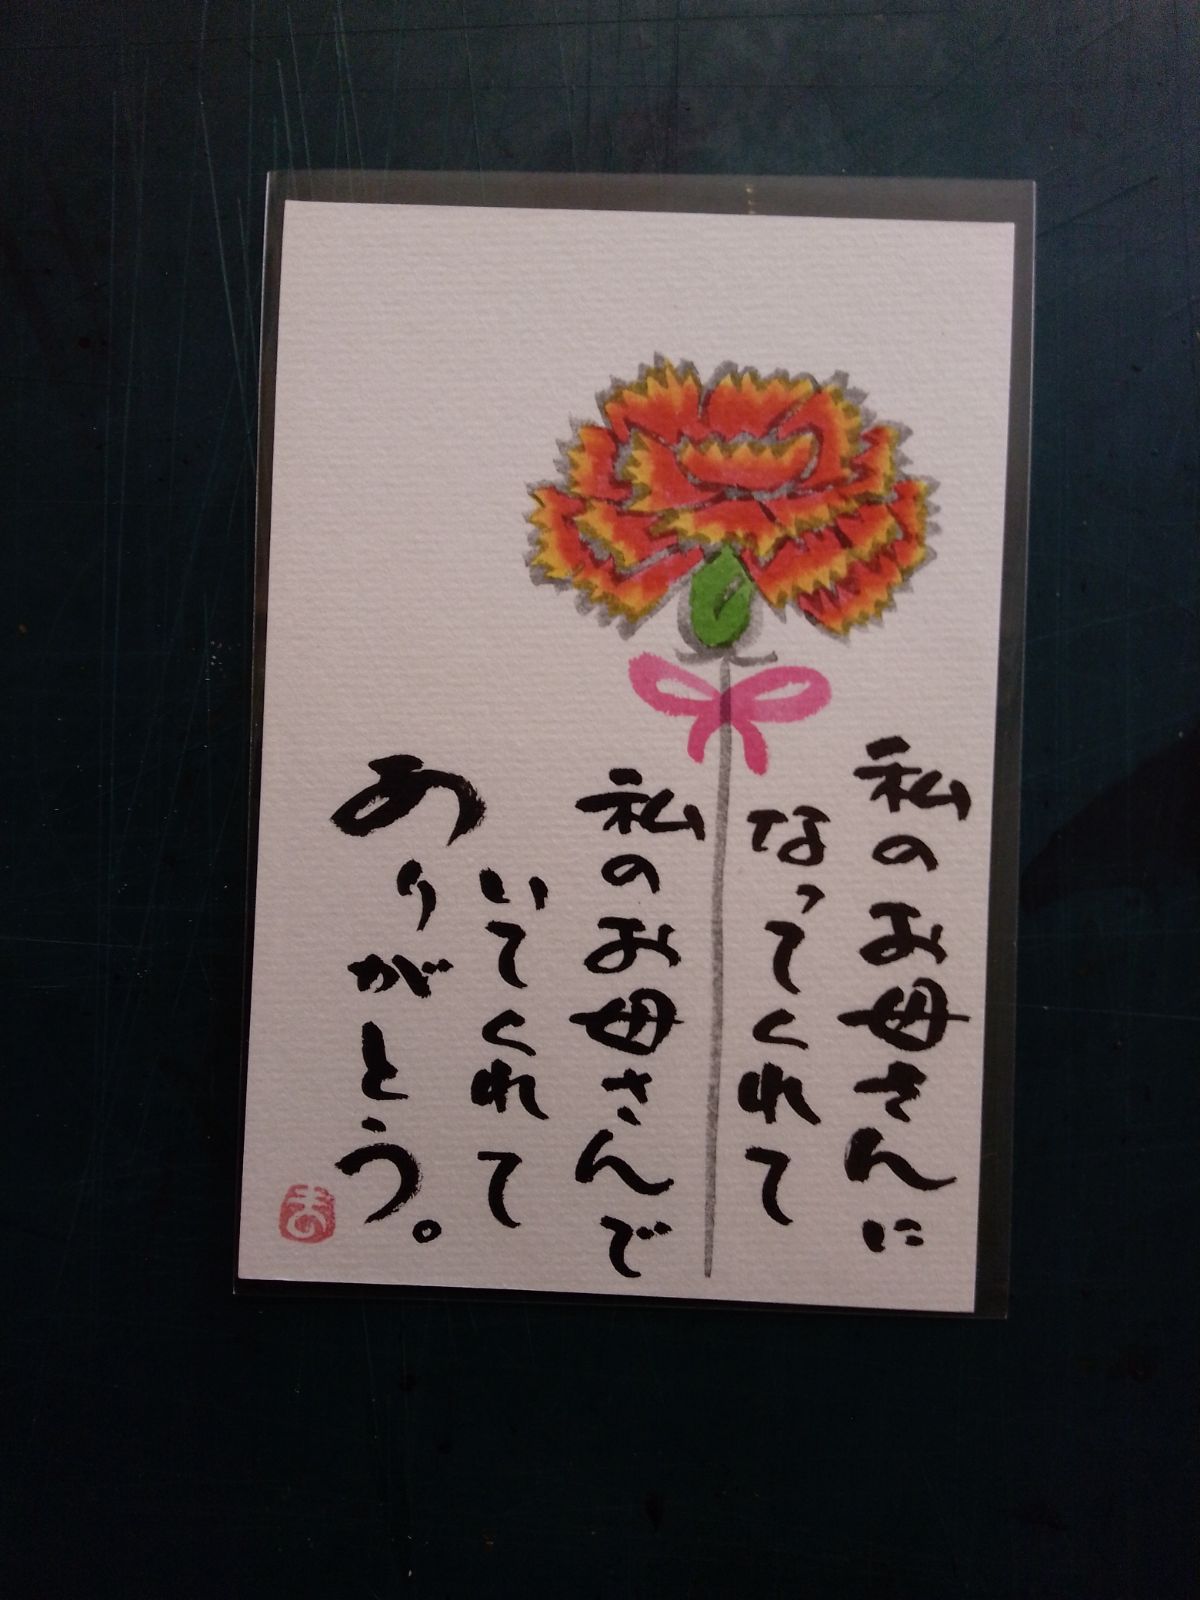 私のお母さんに
なってくれて
私のお母さんで
いてくれて
ありがとう。